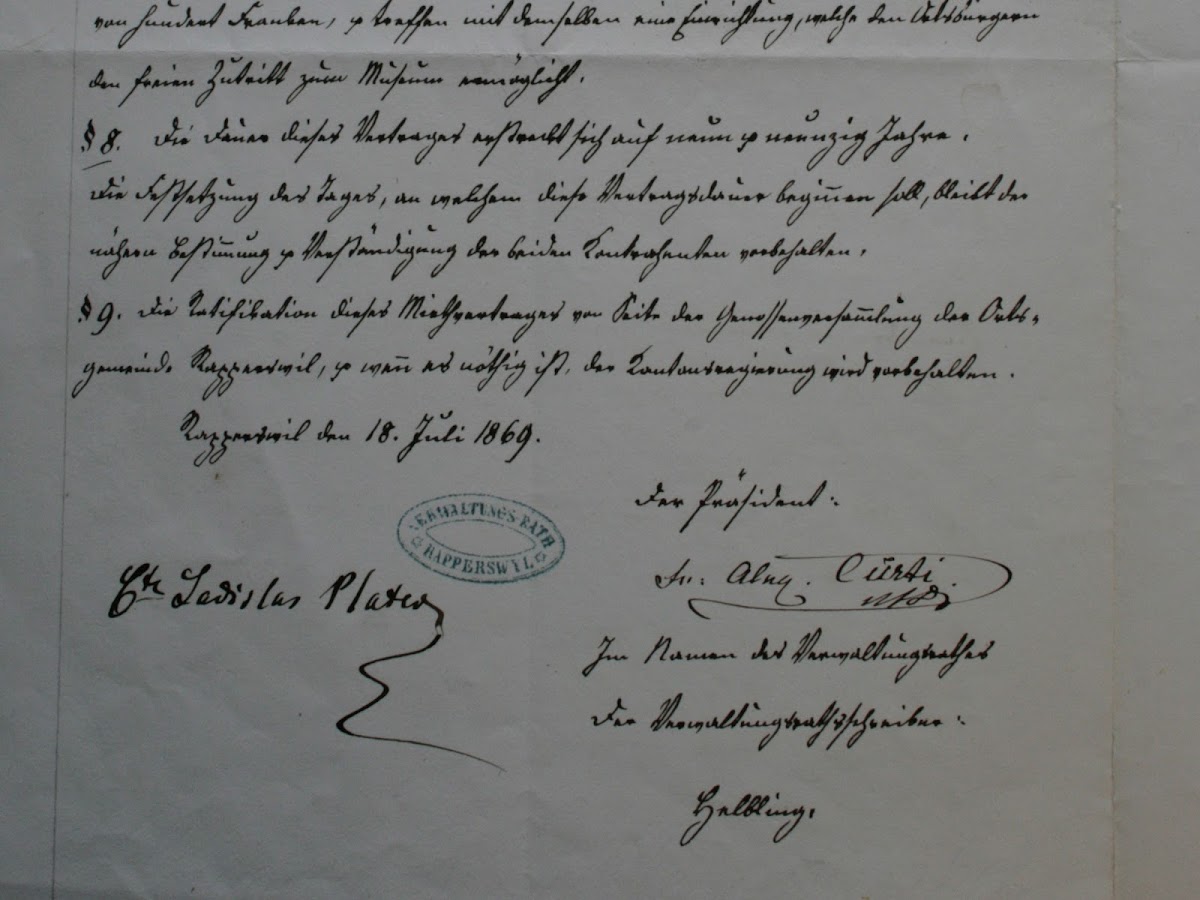 von hundert Franken, & treffen mit demselben eine Einrichtung, welche den Ortsbürgern
den freien Zutritt zum Museum ermöglicht.
§ 8. Die Dauer dieses Vertrages erstreckt sich auf neun & neunzig Jahre.
Die Festsetzung des Tages, an welchem diese Vertragsdauer begin̄en soll, bleibt der
nähern Bestim̄ung & Verständigung der beiden Kontrahenten vorbehalten.
§ 9. Die Ratifikation dieses Miethvertrages von Seite der Genossenversam̄lung der Orts-
gemeinde Rapperswil, & wen̄ es nöthig ist, der Kantonsregierung wird vorbehalten.
Rapperswil den 18. Juli 1869.
Der Präsident:
VERWALTUNGS-RATH
RAPPERSWYL
Cte Ladislas Plater
Curti
Im Namen des Verwaltungsrathes
Der Verwaltungsrathsschreiber:
Helbling.